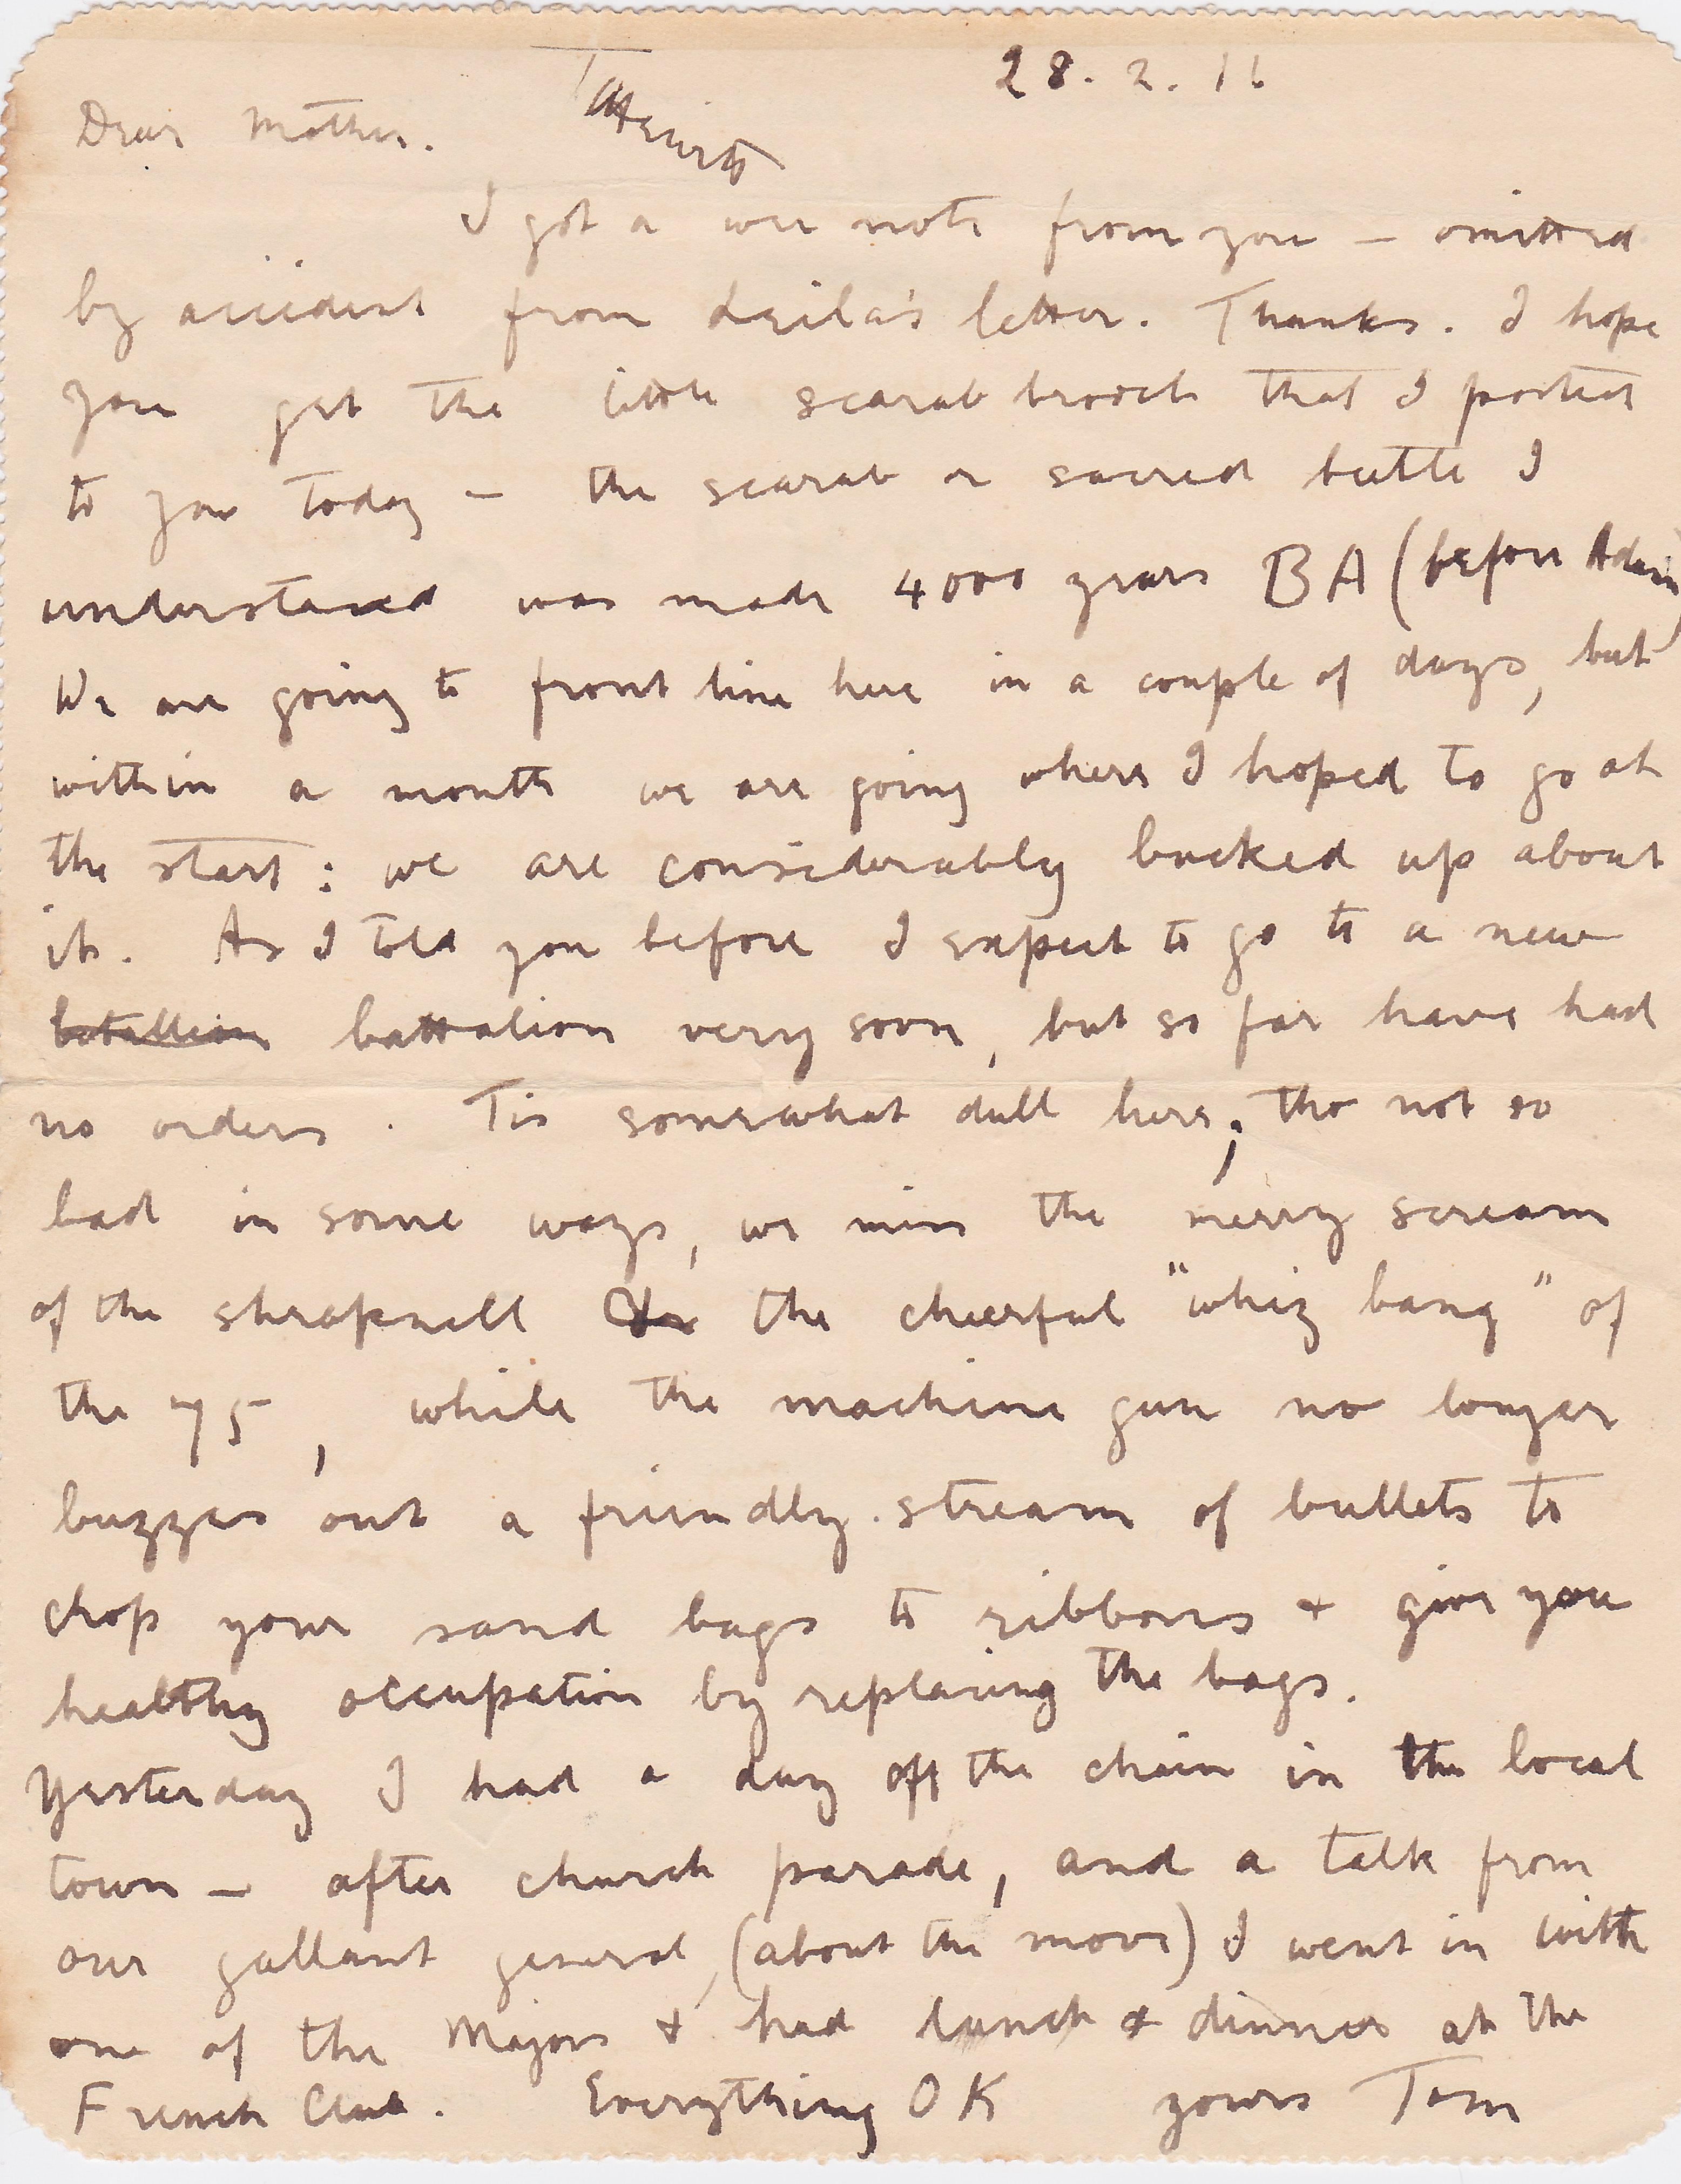 28. 2. 16
Dear Mother.
I got a wee note from you — omitted
by accident from Leila's letter. Thanks. I hope
you get the little scarab brooch that I posted
to you today — the scarab or sacred beetle I
understand was made 4000 years BA (before Adam)
We are going to front line here in a couple of days, but
within a month we are going where I hoped to go at
the start: we are considerably bucked up about
it. As I told you before I expect to go to a new
botallion battalion very soon, but so far have had
no orders. Tis somewhat dull here; tho not so
bad in some ways, we miss the merry scream
of the shrapnell the cheerful "whiz bang" of
the 75, while the machine gun no longer
buzzes out a friendly stream of bullets to
chop your sand bags to ribbons + give you
healthy occupation by replacing the bags.
Yesterday I had a day off the chain in the local
town — after church parade, and a talk from
our gallant general, (about the move) I went in with
one of the Majors & had lunch & dinner at the
French Club. Everything OK yours Tom